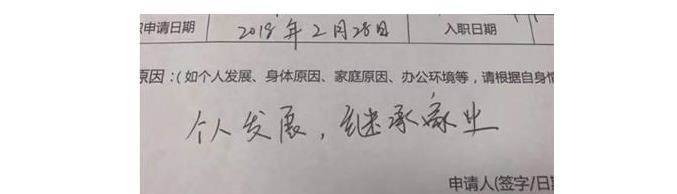 申请日期 2018年2月28日 入职日期
原因：（如个人发展、身体原因、家庭原因、办公环境等，请根据自身情
个人发展，继承家业
申请人(签字/日期